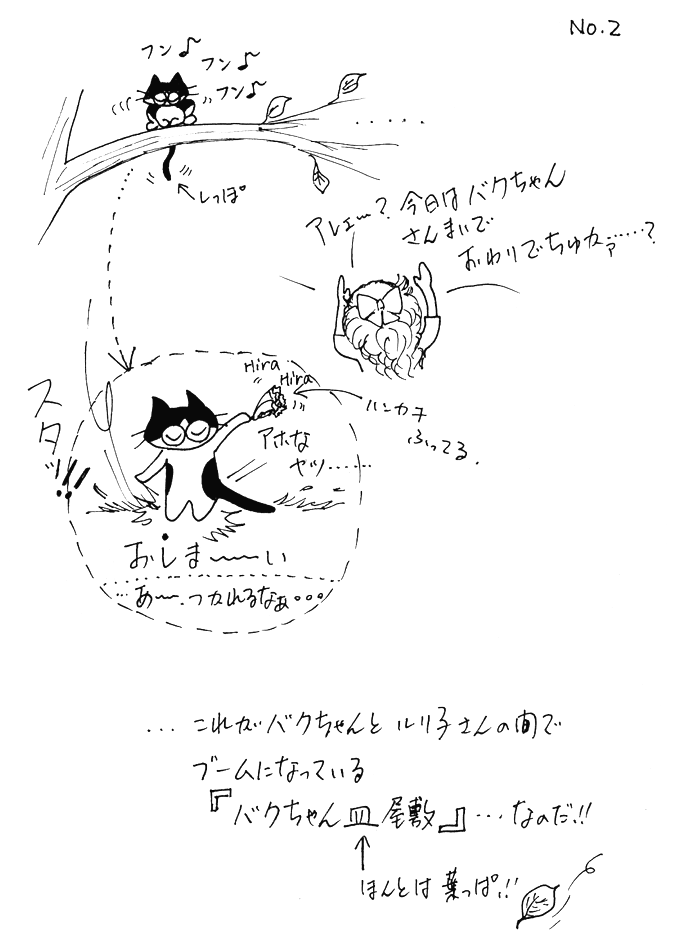 No.2
フン♪
フン♪
フン♪
しっぽ
・・・・・
アレェ〜?今日はバクちゃん
さんまいで
おわりでちゅカァ……?
スタッ!!
Hira
Hira
ハンカチ
ふってる.
アホな
ヤツ……
おしま〜〜い
…あ〜.つかれるなぁ。。。
... これがバクちゃんとルリ子さんの間で
ブームになっている
『バクちゃん皿屋敷』…なのだ!!
ほんとは葉っぱ!!